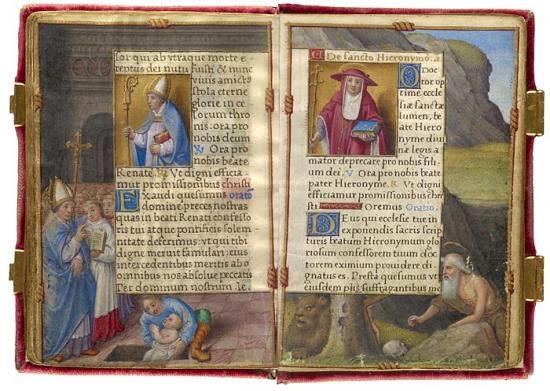 lor qui ab vtraque morte e
reptus dei nutu fuisti & nunc
vivus amictꝰ
stola eterne
glorie in ce
lorum thro
nis: ora pro
nobis deum
V Ora pro
nobis beate
Renate. R Vt digni efficia
mur promissionibus christi
Exaudi quesumus oratio
domine preces nostras
quas in beati Renati confesso
ris tui atque pontificis solem
nitate deferimus: vt qui tibi
digne meruit famulari: eius
intercedentibus meritis ab o
mnibus nos absolue peccatis
Per dominum nostrum. Ie
De sancto Hieronymo. a
O Doc
tor op
time, eccle
siæ sanctæ
lumen, bea
te Hiero
nyme diui
næ legis a
mator deprecare pro nobis fili
um dei. V Ora pro nobis beate
pater Hieronyme. R Vt digni
efficiamur promissionibus chr
sti Oremus Oratio.
Deus qui ecclesie tue in
exponendis sacris scrip
turis beatum Hieronymum glo
riosum confessorem tuum doc
torem eximium prouidere di
gnatus es. Presta quesumus vt
eiusdem piis suffragantibus me